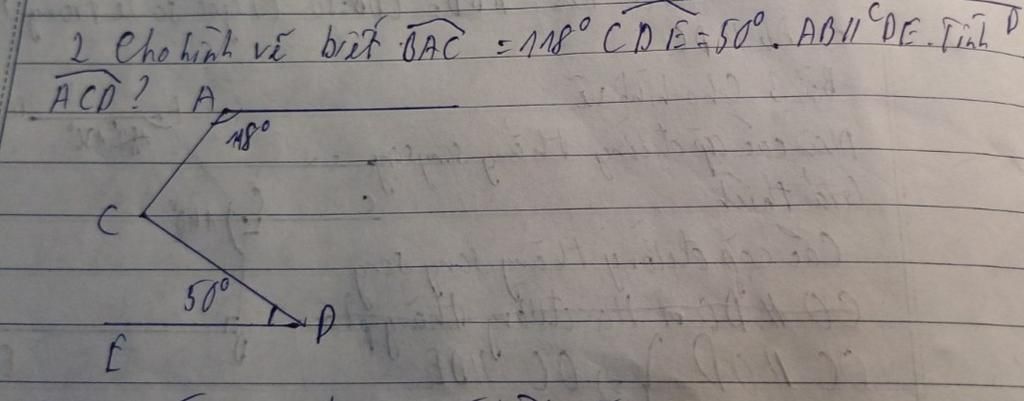 2 Cho hình vẽ biết BAC = 118° CDE = 50°. AB // DE. Tính
ACD?
A
118°
C
50°
D
E